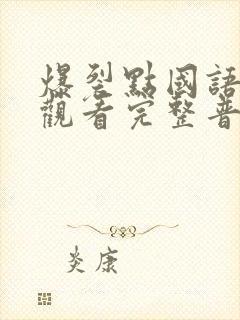 爆裂點國語
觀看完整普
炎康